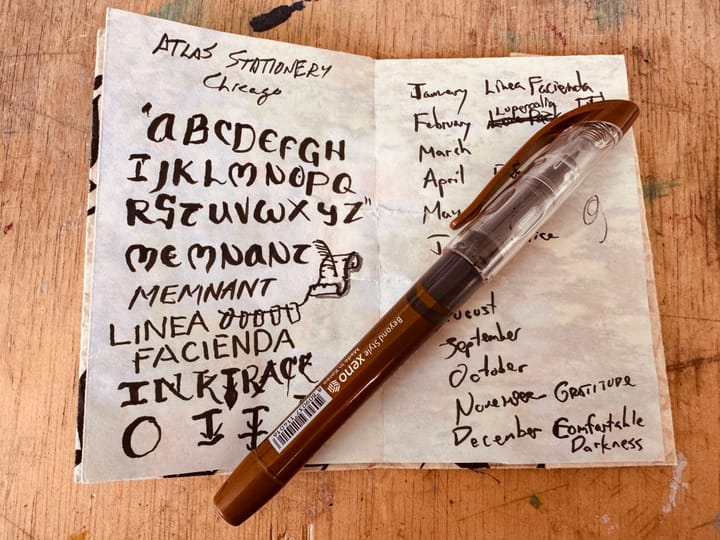 ATLAS STATIONERY
Chicago
"ABCDEFGH
IJKLMNOPQ
RSTUVWXYZ"
MEMNANT
MEMNANT
LINEA
FACIENDA
INKTRACE
January Linea Facienda
Lupercalia
February
March
April
May
August
September
October
November GRATITUDE
December Comfortable
Darkness
Beyond Style xeno
Made in Korea